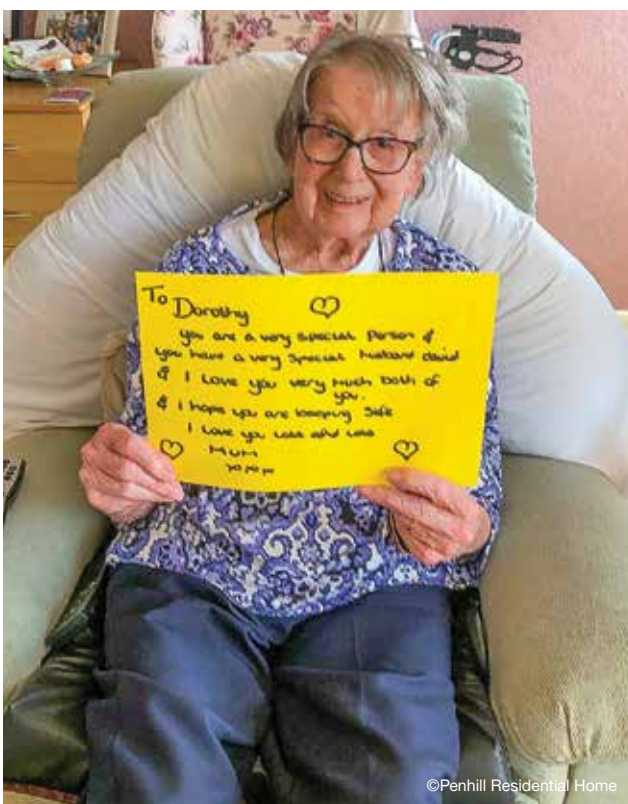 To Dorothy
you are a very special person &
you have a very special husband david
& I Love you very much both of
you.
& I hope you are keeping safe
I Love you Lots and Lots
MUM
xoxox
©Penhill Residential Home